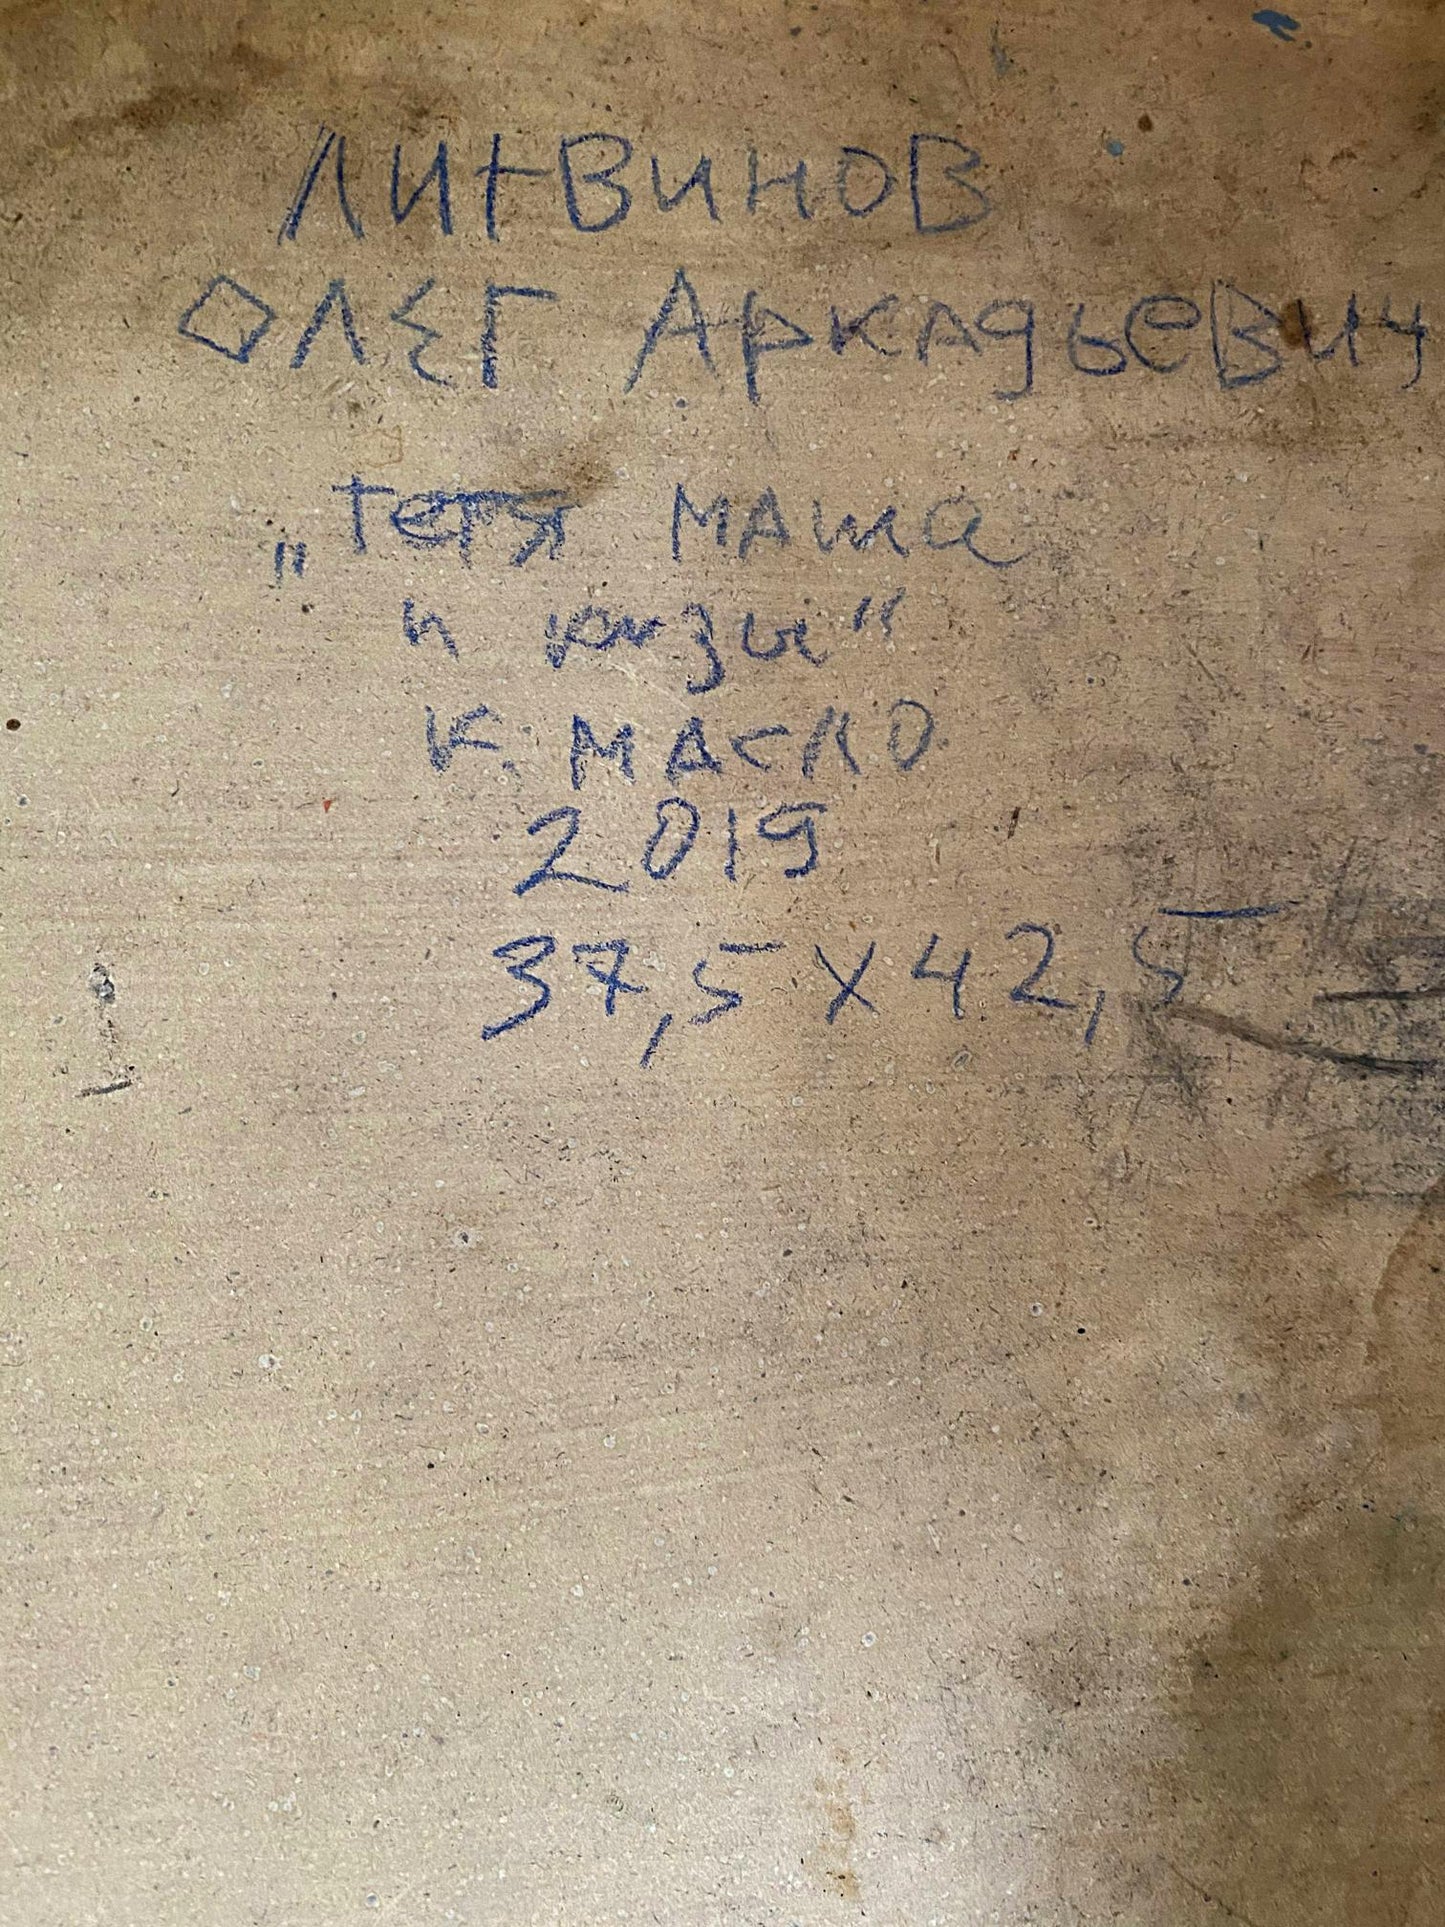 ЛИТВИНОВ
ОЛЕГ АРКАДЬЕВИЧ
„Тетя МАША
и
К. МАСЛО
2019
37,5 х 42,5